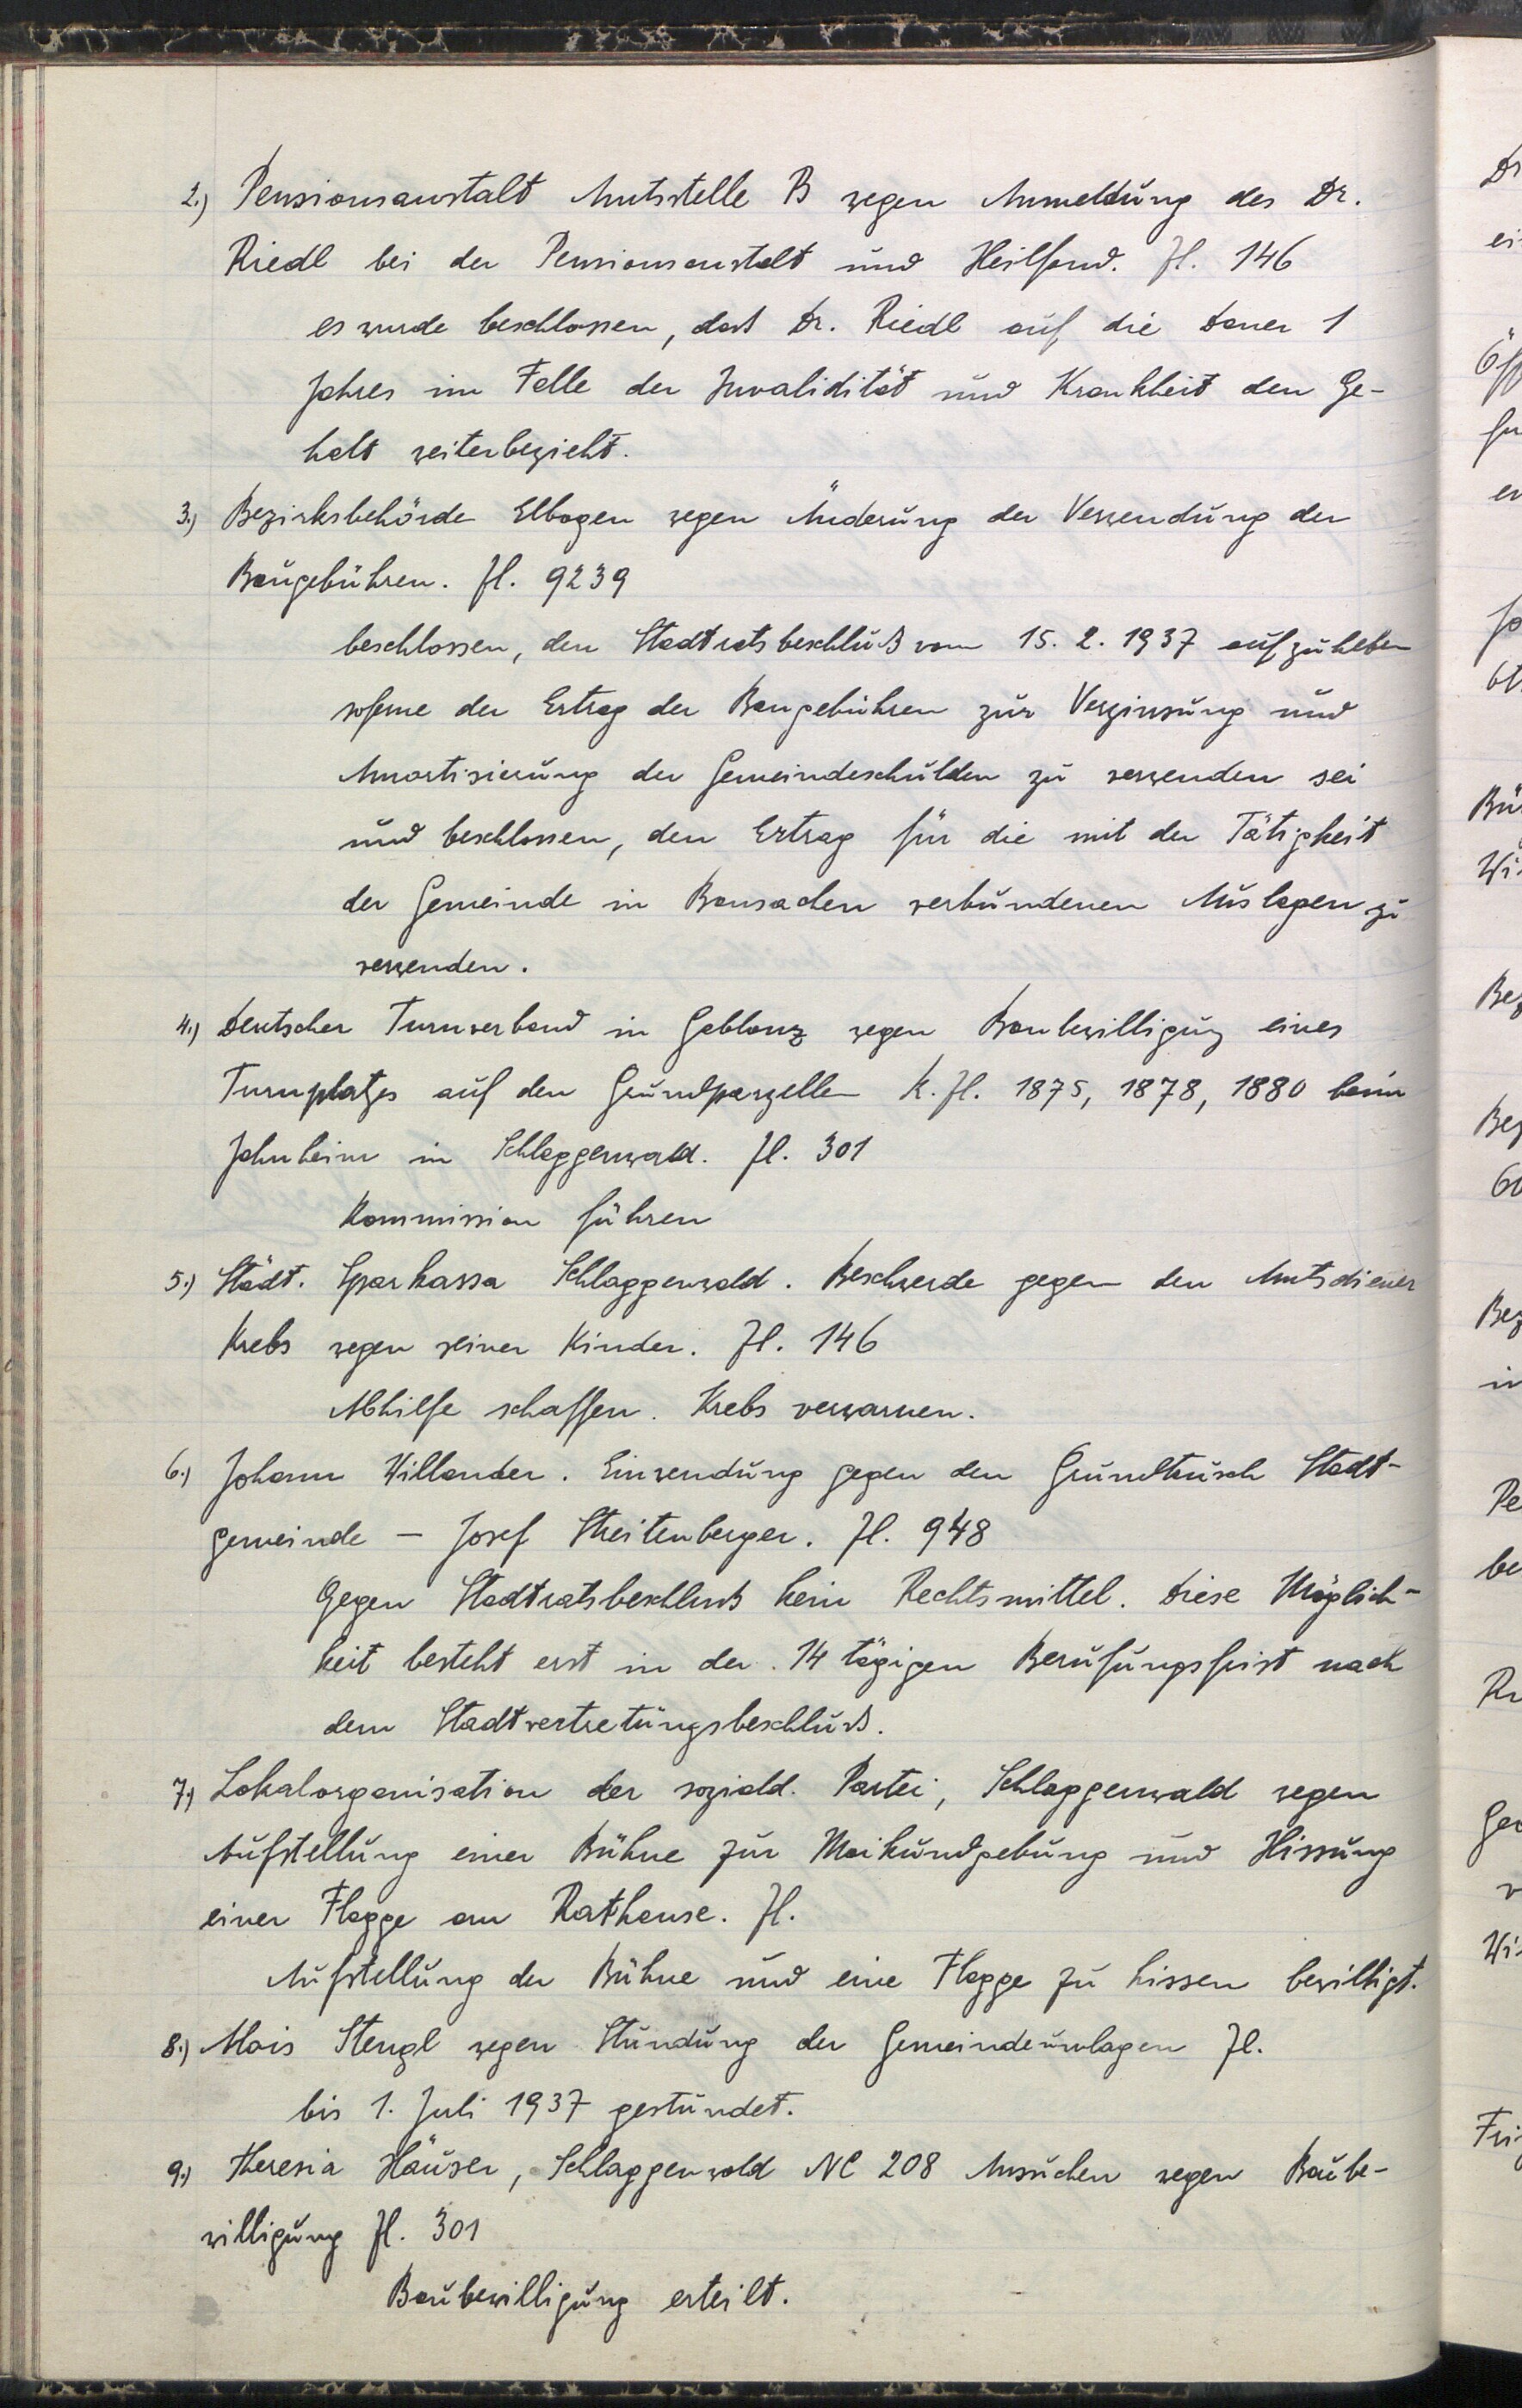 2.) Pensionsanstalt Amtsstelle B wegen Anmeldung des Dr.
Riedl bei der Pensionsanstalt und Heilfond. Zl. 146
es wurde beschlossen, daß Dr. Riedl auf die Dauer 1
Jahres im Falle der Invalidität und Krankheit den Ge-
halt weiterbezieht.
3.) Bezirksbehörde Elbogen wegen Änderung der Verwendung der
Baugebühren. Zl. 9239
beschlossen, den Stadtratsbeschluß vom 15. 2. 1937 aufzuheben
soferne der Ertrag der Baugebühren zur Verzinsung und
Amortisierung der Gemeindeschulden zu verwenden sei
und beschlossen, den Ertrag für die mit der Tätigkeit
der Gemeinde in Bausachen verbundenen Auslagen zu
verwenden.
4.) Deutscher Turnverband in Gablonz wegen Baubewilligung eines
Turnplatzes auf den Grundparzellen K. Zl. 1875, 1878, 1880 beim
Jahnheim in Schlaggenwald. Zl. 301
Kommission führen
5.) Städt. Sparkassa Schlaggenwald. Beschwerde gegen den Amtsdiener
Krebs wegen seiner Kinder. Zl. 146
Abhilfe schaffen. Krebs verwarnen.
6.) Johann Willander. Einwendung gegen den Grundtausch Stadt-
gemeinde – Josef Streitenberger. Zl. 948
Gegen Stadtratsbeschluß kein Rechtsmittel. Diese Möglich-
keit besteht erst in der 14 tägigen Berufungsfrist nach
dem Stadtvertretungsbeschluß.
7.) Lokalorganisation der soziald. Partei, Schlaggenwald wegen
Aufstellung einer Bühne zur Maikundgebung und Hissung
einer Flagge am Rathause. Zl.
Aufstellung der Bühne und eine Flagge zu hissen bewilligt.
8.) Alois Stengl wegen Stundung der Gemeindeumlagen Zl.
bis 1. Juli 1937 gestundet.
9.) Theresia Häuser, Schlaggenwald NC 208 Ansuchen wegen Baube-
willigung Zl. 301
Baubewilligung erteilt.